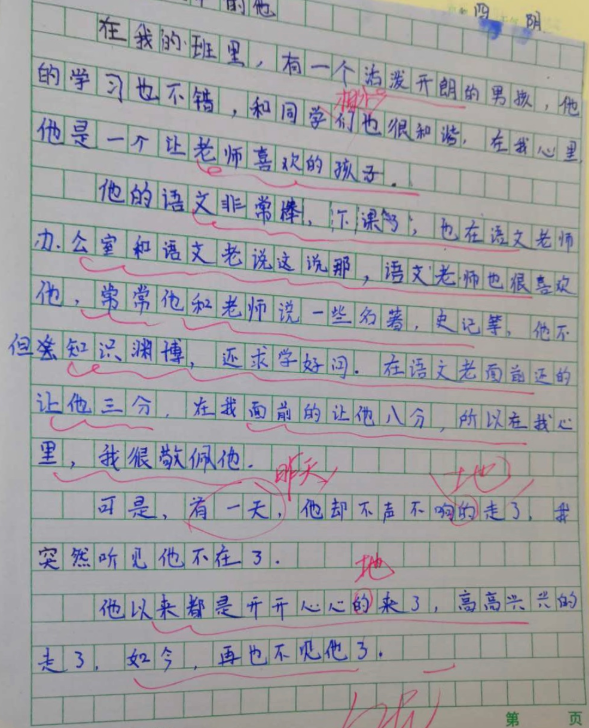 的他
四 阴
在我的班里，有一个活泼开朗的男孩，他
的学习也不错，和同学们也很和谐，在我心里，
相处
他是一个让老师喜欢的孩子。
他的语文非常棒，下课了，也在语文老师
办公室和语文老说这说那，语文老师也很喜欢
他，常常他和老师说一些名著，史记等，他不
但知识渊博，还求学好问。在语文老面前还的
让他三分，在我面前的让他八分，所以在我心
里，我很敬佩他。
昨天 地
可是，有一天，他却不声不响的走了，我
突然听见他不在了。
地
他以来都是开开心心的来了，高高兴兴的
走了，如今，再也不见他了。
第 页